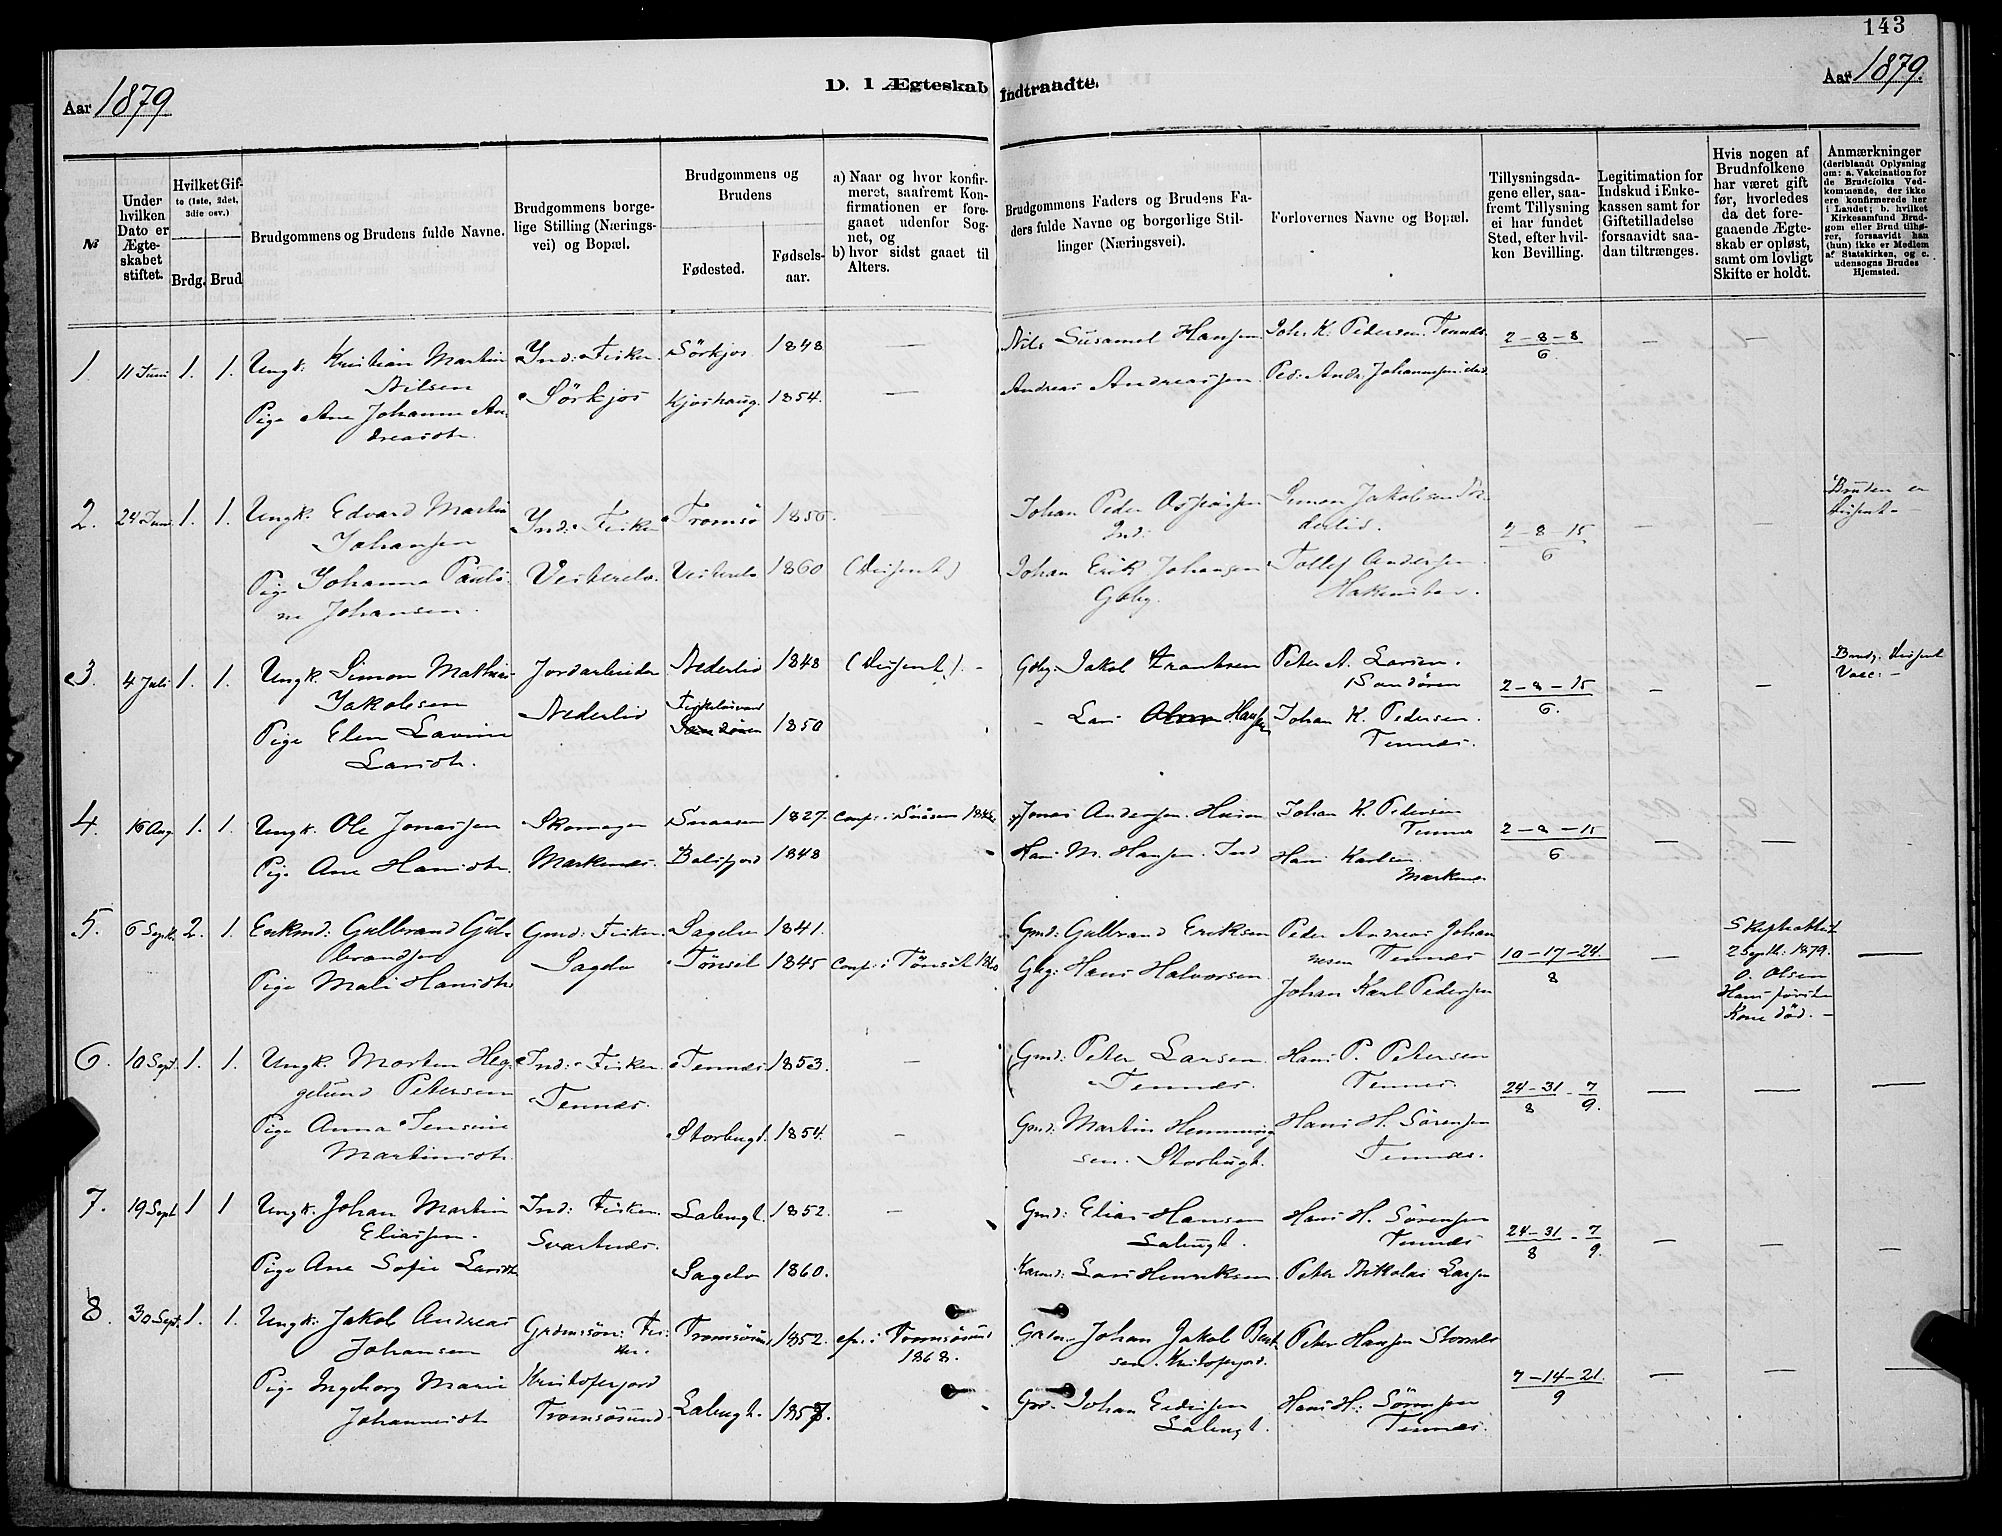 143
Aar 1879
D. I Ægteskab Indtraadte.
Aar 1879.
№
Under hvilken Dato er Ægteskabet stiftet.
Hvilket Gifte (1ste, 2det, 3die osv.)
Brdg. Brud
Brudgommens og Brudens fulde Navne.
Brudgommens borgelige Stilling (Næringsvei) og Bopæl.
Brudgommens og Brudens
Fødested.
Fødselsaar.
a) Naar og hvor konfirmeret, saafremt Konfirmationen er foregaaet udenfor Sognet, og
b) hvor sidst gaaet til Alters.
Brudgommens Faders og Brudens Faders fulde Navne og borgerlige Stillinger (Næringsvei).
Forlovernes Navne og Bopæl.
Tillysningsdagene eller, saafremt Tillysning ei har fundet Sted, efter hvilken Bevilling.
Legitimation for Indskud i Enkekassen samt for Giftetilladelse forsaavidt saadan tiltrænges.
Hvis nogen af Brudnfolkene har været gift før, hvorledes da det foregaaende Ægteskab er opløst, samt om lovligt Skifte er holdt.
Anmærkninger (deriblandt Oplysning om: a. Vakcination for de Brudefolks Vedkommende, der ikke ere konfirmerede her i Landet; b. hvilket Kirkesamfund Brudgom eller Brud tilhører, forsaavidt han (hun) ikke er Medlem af Statskirken, og c. udensogns Brudes Hjemsted.
1. 11 Juni 1. 1. Ungk. Kristian Martin
Nilsen
Pige Ane Johanne An-
dreasdtr.
Ind: Fisker.
Sörkjos
Sörkjos 1848 —
Kjoshaug. 1854. —
Nils Susamel Hansen
Andreas Andreassen
Johs K. Pedersen Tennes
Ped: Andr. Johannesen ibd.
2-8-8
6.
— —
2. 24 Juni 1. 1. Ungk. Edvard Martin
Johansen
Pige Johanna Pauli-
ne Johansen.
Ind: Fisker
Vesterelv.
Tromsö 1856. —
Vesterelv 1860 (Dissent)
Johan Peder
Ind:
Johan Erik Johansen
Gbg.
Simon Jakobsen Ne-
derlid.
Tollef Andersen
2-8-15
6
— —
Bruden er
Dissent-
3. 4 Juli 1. 1. Ungk. Simon Mathias
Jakobsen
Pige Elen Lavine
Larsdtr.
Jordarbeider
Nederlid
Nederlid 1848 (Dissent). -
1850
Gbg. Jakob Frantsen
- Lars Hansen
Peter A. Larsen.
Sandören
Johan K. Pedersen.
Tennes.
2-8-15
6.
— —
Brudg. Dissent
Vacc: -
4. 16 Aug 1. 1. Ungk. Ole Jonassen
Pige Ane Hansdtr.
Skomager
Markenes.
Snaasen 1827. Conf. i Snåsen
Balsfjord 1848
Jonas Andersen. Husm
Hans M. Hansen. Ind
Johan K. Pedersen
Tennes
Hans Karlsen
Markenes
2-8-15
6
— —
5. 6 Septb. 2. 1. Enkmd: Gulbrand Gul-
brandsen
Pige Mali Hansdtr.
Gmd: Fisker.
Sagelv
Sagelv 1841.
Tönset 1845 Conf. i Tönset 1860
Gmd: Gulbrand Eriksen
Gbg: Hans Halvorsen
Peder Andreas Johan
nesen Tennes
Johan Karl Pedersen
10-17-24.
8
—
Skifteattest
2 Septb. 1879.
O. Olsen
Hans første
Kone död. -
—
6. 10 Sept. 1. 1. Ungk. Morten Heg-
gelund Petersen
Pige Anna Jensine
Martinsdtr.
Ind: Fisker.
Tennes.
Tennes 1853. —
Storbugt. 1854. -
Gmd: Peter Larsen
Tennes.
Gmd: Martin Hemming
sen. Storbugt.
Hans P. Petersen
Tennes.
Hans H. Sörensen
Tennes.
24-31 - 7
8 9.
— — —
7. 19 Sept 1 1 Ungk. Johan Martin
Eliassen.
Pige Ane Sofie Larsdtr
Ind: Fisker.
Svartnes.
Labugt. 1852. -
Sagelv 1860.
Gmd: Elias Hansen
Labugt.
Lars Henriksen
Hans H. Sörensen
Tennes
Peter Nikolai Larsen
24-31 - 7
8 9.
— — —
8. 30 Sept. 1. 1. Ungk: Jakob Andreas
Johansen
Pige Ingeborg Marie
Johannesdtr
Grdmssön: Fis-
ker.
Kristoferjord
Tromsösund.
Tromsösund 1852. cfr. i Tromsösund
1868.
Labugt. 1857.
Johan Jakob Bent-
sen. Kristoferjord.
Johan
Labugt.
Peter Hansen
Hans H: Sörensen
Tennes.
7-14-21.
9
— — —